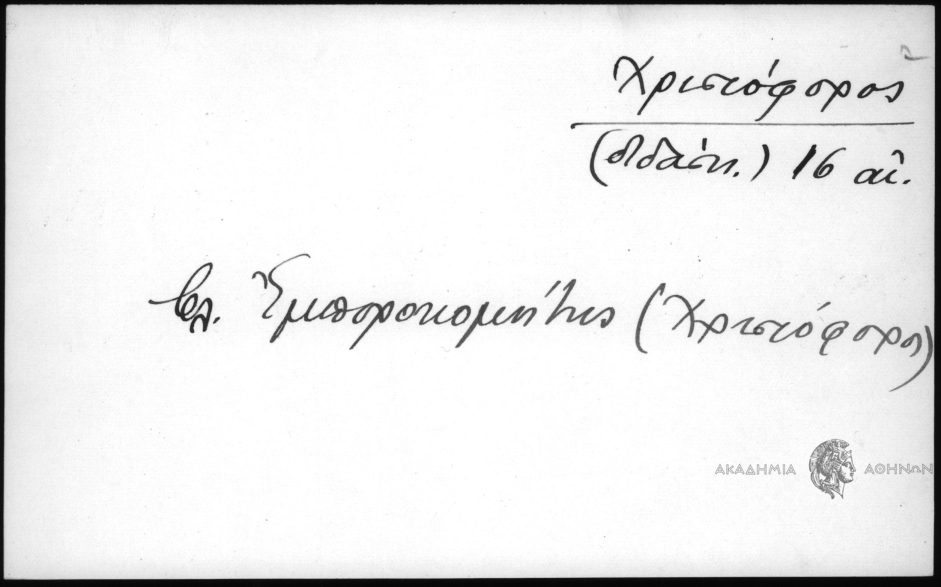 Χριστόφορος
(διδάσκ.) 16 αἰ.
βλ. Ἐμποροκομήτης (Χριστόφορος)
ΑΚΑΔΗΜΙΑ ΑΘΗΝΩΝ